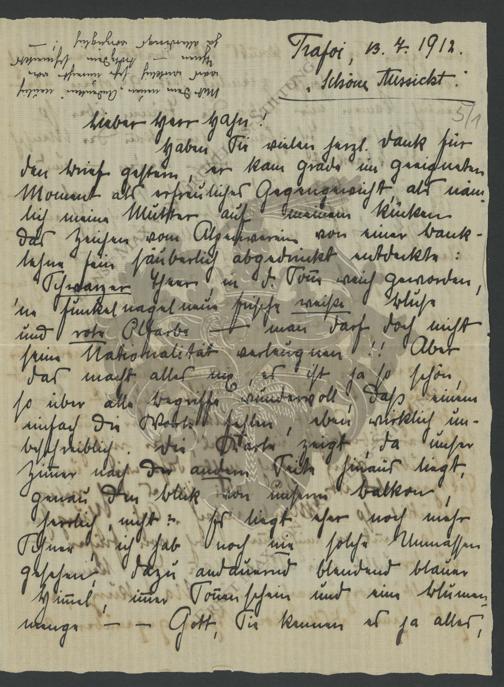 Trafoi, 13. 7. 1912.
"Schöne Aussicht".
5/1
Lieber Herr Hahn!
Haben Sie vielen herzl. Dank für
den Brief gestern, er kam grade im geeigneten
Moment als erfreuliches Gegengewicht als näm-
lich meine Mutter auf meinem Rücken
das Zeichen vom Alpenverein von einer Bank-
lehne fein säuberlich abgedruckt entdeckte:
Schwarzer Theer, in d. Sonne weich geworden,
'ne funkelnagelneue frische weiße Bluse
und rote Ölfarbe — man darf doch nicht
seine Nationalität verleugnen,!! Aber
das macht alles nix, es ist ja so schön,
so über alle Begriffe wundervoll, daß einem
einfach die Worte fehlen, eben wirklich un-
beschreiblich. Die Karte zeigt, da unser
Zimmer nach der andern Seite hinaus liegt
genau den Blick von unserm Balkon,
herrlich, nicht? Es liegt eher noch mehr
Schnee, ich hab noch nie solche Unmassen
gesehen, dazu andauernd blendend blauer
Himmel, immer Sonnenschein und eine Blumen-
menge — — Gott, Sie kennen es ja alles,